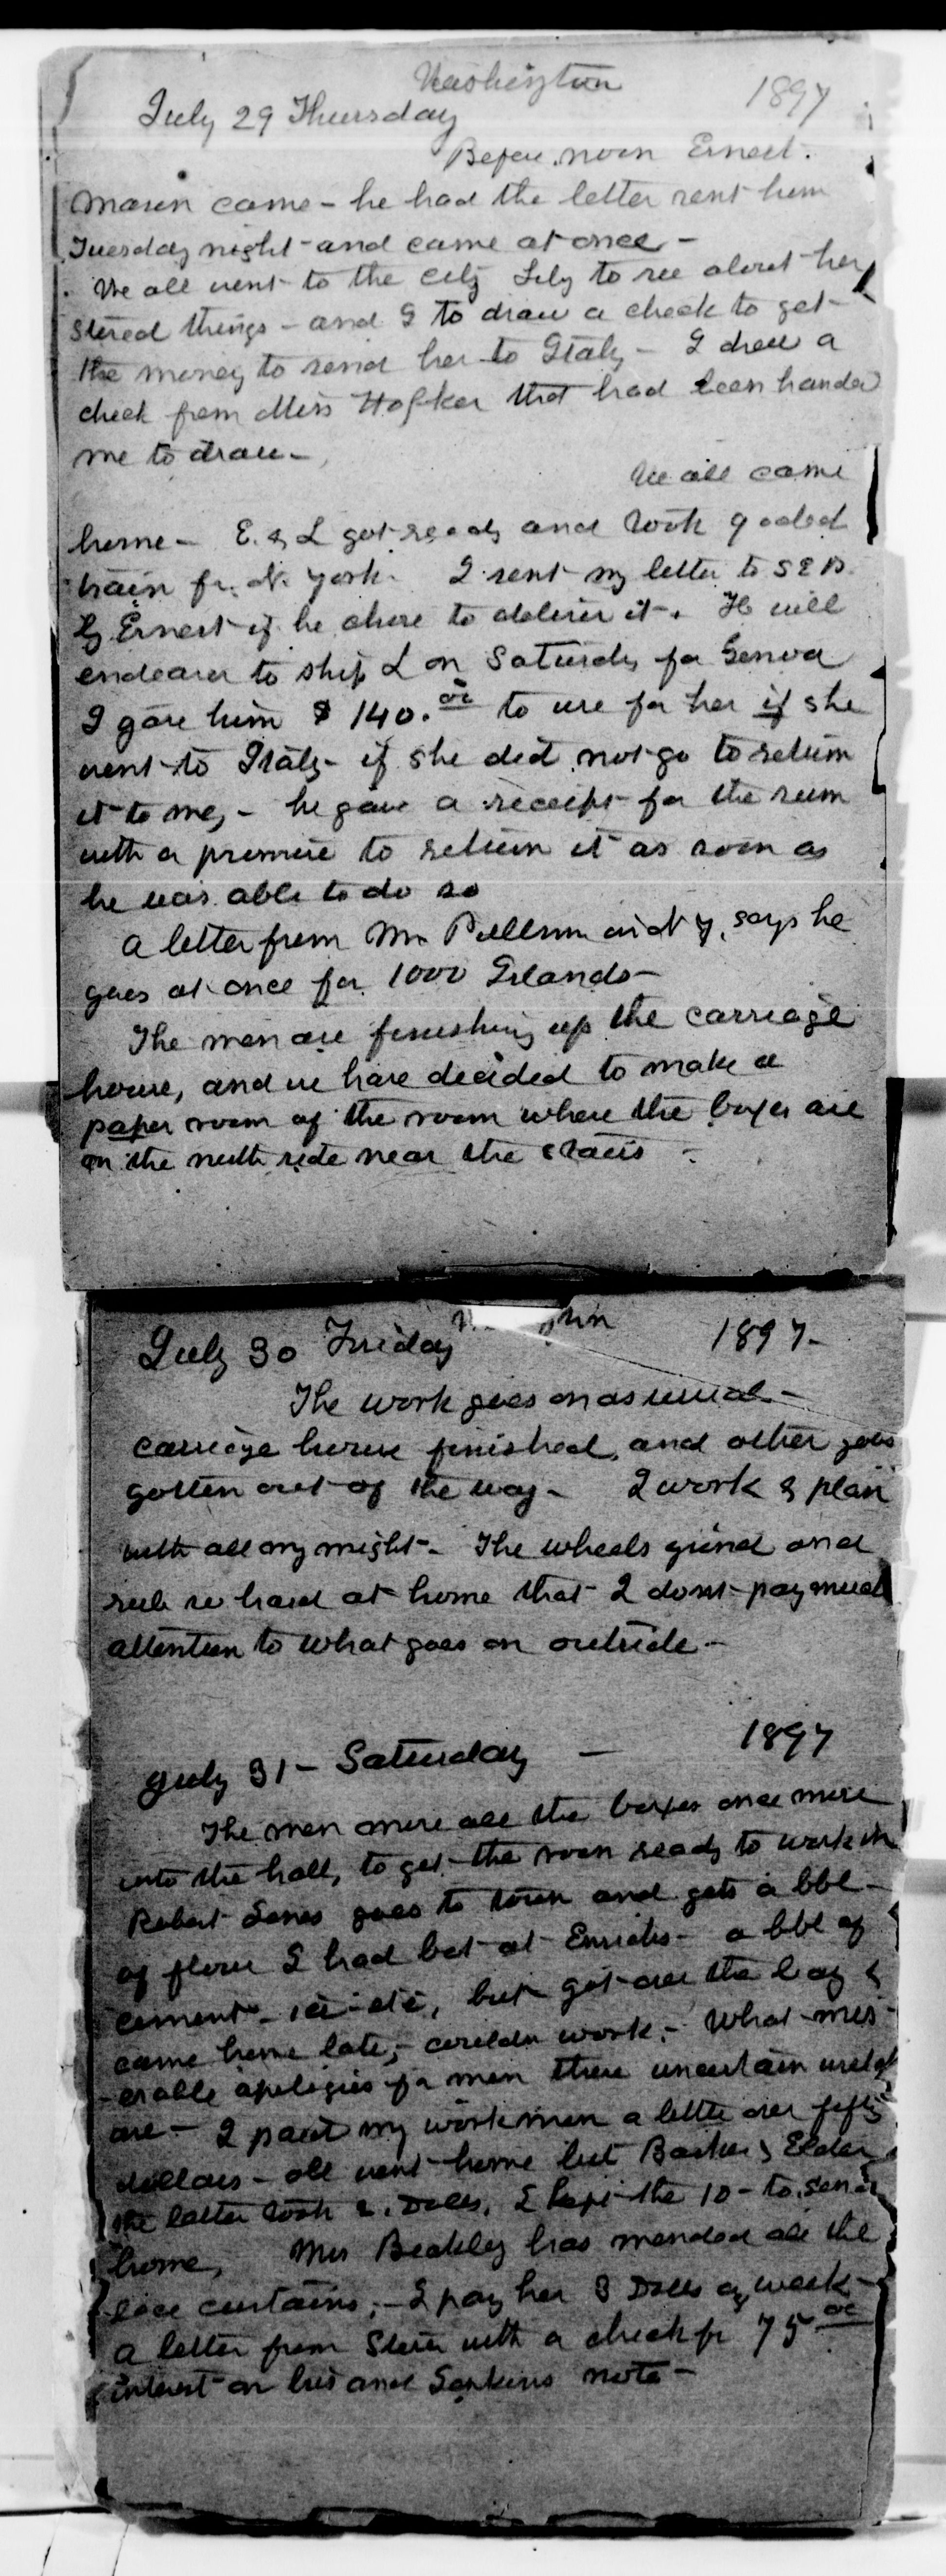 Washington
July 29 Thursday 1897
Before noon Ernest
Mason came - he had the letter sent him
Tuesday night - and came at once -
We all went to the city Lily to see about her
stored things - and I to draw a check to get
the money to send her to Italy - I drew a
check from Miss Hofker that had been handed
me to draw -
We all came
home - E. & L got ready and took 9 oclock
train for N. York. I sent my letter to S E B.
by Ernest if he chose to deliver it. He will
endeavor to ship L on Saturday for Genoa
I gave him $ 140.00 to use for her if she
went to Italy - if she did not go to return
it to me, - he gave a receipt for the sum
with a promise to return it as soon as
he was able to do so
a letter from Mr Pullman in N Y, says he
goes at once for 1000 Islands -
The men are finishing up the carriage
house, and we have decided to make a
paper room of the room where the boxes are
on the north side near the stairs -
July 30 Friday 1897 -
The work goes on as usual -
carriage house finished, and other jobs
gotten out of the way - I work & plan
with all my might - The wheels grind and
rub so hard at home that I dont pay much
attention to what goes on outside -
July 31 - Saturday - 1897
The men move all the boxes once more
into the hall, to get the room ready to work in
Robert Jones goes to town and gets a bbl -
of flour I had bot at - a bbl of
cement - but got over the bay &
came home late, - couldn work, - What mis
-erable apologies for men these uncertain
are - I paid my workmen a little over fifty
dollars - all went home but Barker & Elder
the latter took 2. Dolls, I kept the 10 - to send
home, Mrs Beakley has mended all the
lace curtains, - I pay her 3 Dolls a week -
a letter from with a check for 75 00
interest on his and note -